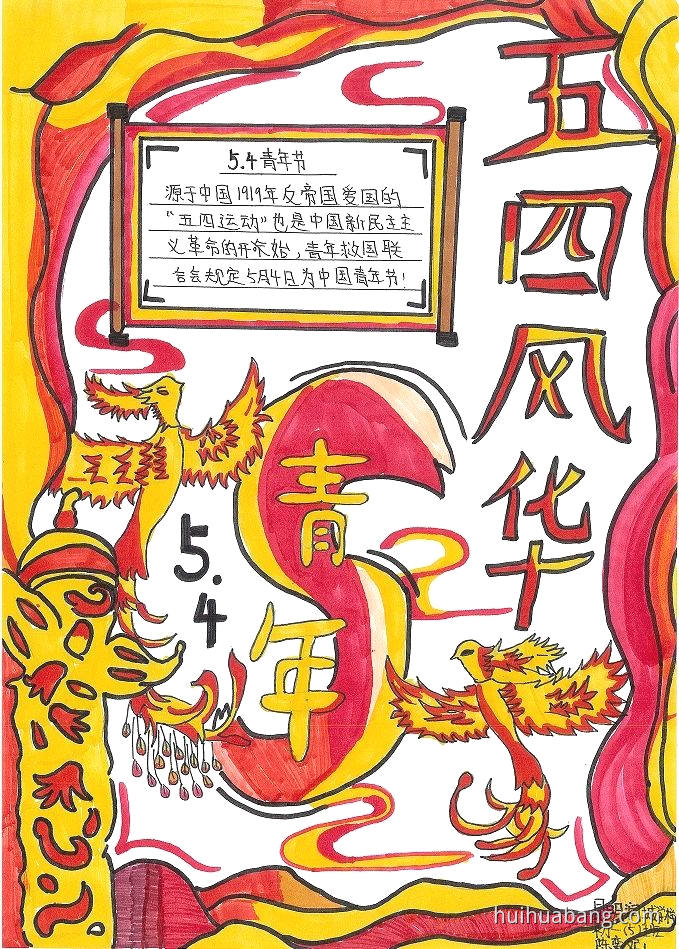 5.4青年节
源于中国1919年反帝国爱国的
“五四运动”也是中国新民主主
义革命的开始，青年救国联
合会规定5月4日为中国青年节！
五四风华
青年
5.4
huihuabang.com